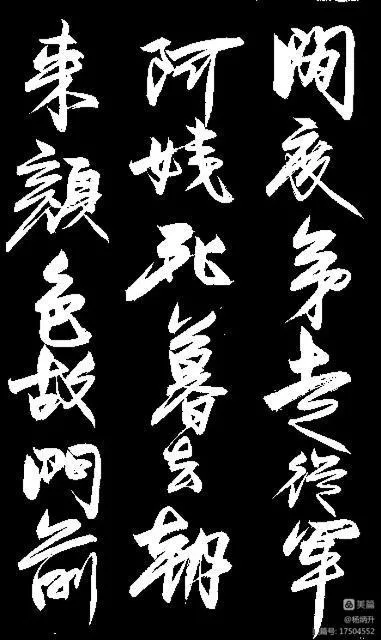 閒度弟走從軍
阿姨死暮去朝
來顔色故門前
美篇
@杨炳升
美篇号: 17504552